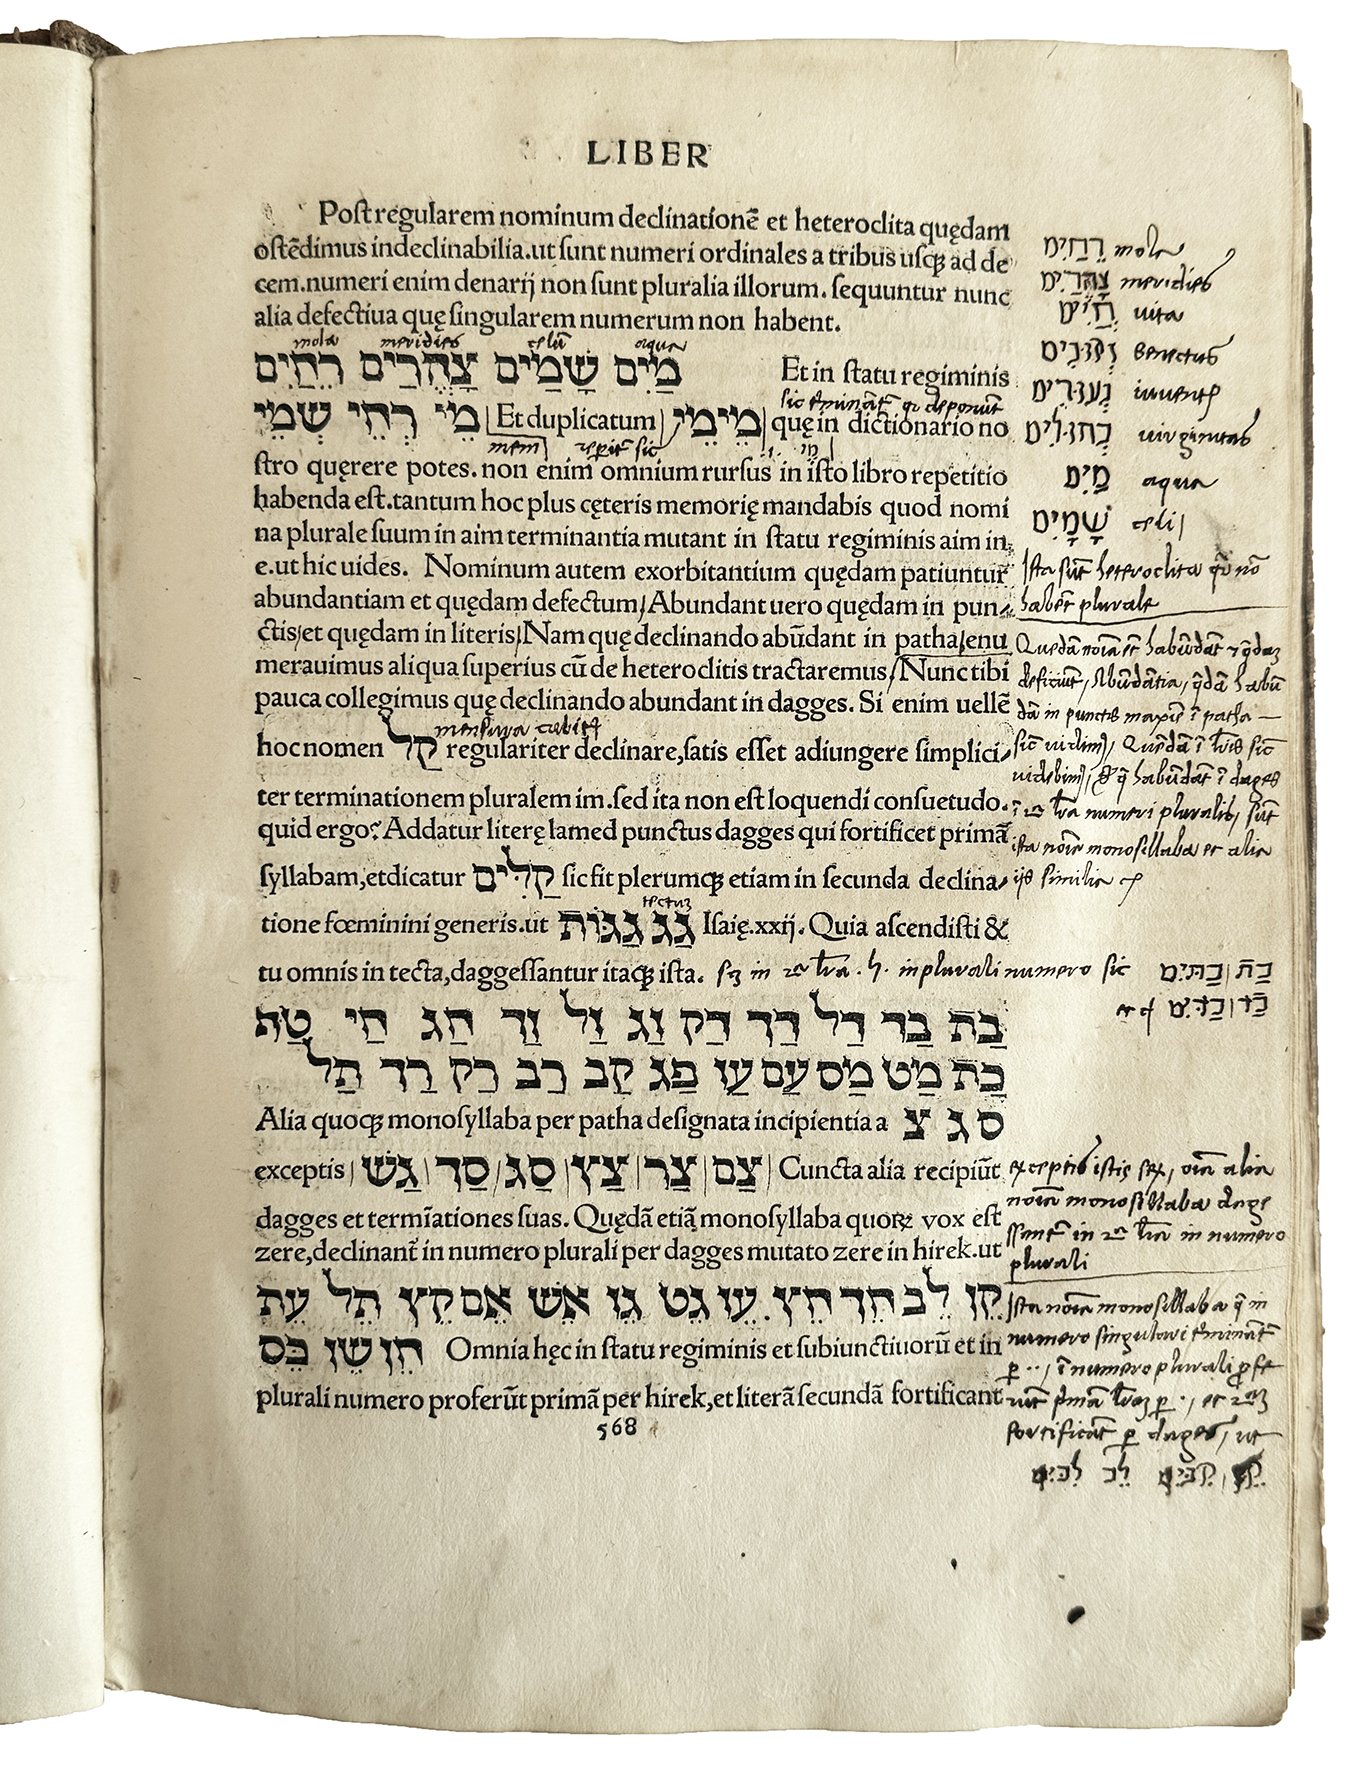 LIBER
Post regularem nominum declinationē et heteroclita quędam
ostēdimus indeclinabilia.ut sunt numeri ordinales a tribus usqꝫ ad de
cem.numeri enim denarij non sunt pluralia illorum. sequuntur nunc
alia defectiua quę singularem numerum non habent.
mola meridies celū aqua
מַיִם שָׁמַיִם צָהֳרַיִם רֵחַיִם Et in statu regiminis
מֵי רְחֵי שְׁמֵי Et duplicatum מֵימֵי quę in dictionario no
stro quęrere potes. non enim omnium rursus in isto libro repetitio
habenda est.tantum hoc plus cęteris memorię mandabis quod nomi
na plurale suum in aim terminantia mutant in statu regiminis aim in
e.ut hic uides. Nominum autem exorbitantium quędam patiuntur
abundantiam et quędam defectum/Abundant uero quędam in pun-
ctis/et quędam in literis/Nam quę declinando abūdant in patha/enu
merauimus aliqua superius cū de heteroclitis tractaremus/Nunc tibi
pauca collegimus quę declinando abundant in dagges. Si enim uellē
mensura
hoc nomen קַל regulariter declinare,satis esset adiungere simplici-
ter terminationem pluralem im.sed ita non est loquendi consuetudo.
quid ergo? Addatur literę lamed punctus dagges qui fortificet primā
syllabam,et dicatur קַלִּים sic fit plerumqꝫ etiam in secunda declina-
tectum
tione fœminini generis.ut גַּג גַּגּוֹת Isaię.xxij. Quia ascendisti &
tu omnis in tecta,daggessantur itaqꝫ ista. in plurali numero sic
בַּת בַּד דַּל דַּךְ דַּק וַג וַל וַד חַג חַי טַת
כַּת מַט מַס עַם עַז פַּג קַב רַב רַק רַד תַל
Alia quoqꝫ monosyllaba per patha designata incipientia a ס ג צ
exceptis צַם צַר צַץ סַג סַד גַשׁ Cuncta alia recipiūt
dagges et termīationes suas. Quędā etiā monosyllaba quoꝝ vox est
zere,declinant̄ in numero plurali per dagges mutato zere in hirek.ut
קֵן לֵב חֵךְ חֵץ עֵז גֵט גֵו אֵשׁ אֵם קֵץ תֵל עֵת
חֵן שֵׁן כֵּס Omnia hęc in statu regiminis et subiunctiuorū et in
plurali numero proferūt primā per hirek,et literā secundā fortificant
568
רֵחַיִם mola
צָהֳרַיִם meridies
חַיִּים vita
זְקוּנִים senectus
נְעוּרִים iuuentꝰ
בְּתוּלִים uirginitas
מַיִם aqua
שָׁמַיִם celi
Ista sūt heteroclita nō
habēt plurale
Quedā noīa habūdāt
in punctis in patha
ista noīa monosillaba et alia
similia
בַּת בַּתִּים
בַּד בַּדִּים
exceptis istis sex, oīa alia
noīa monosillaba dage
in numero
plurali
Ista noīa monosillaba in
numero singulari
in numero plurali
fortificāt dages, ut
לֵב לִבִּים